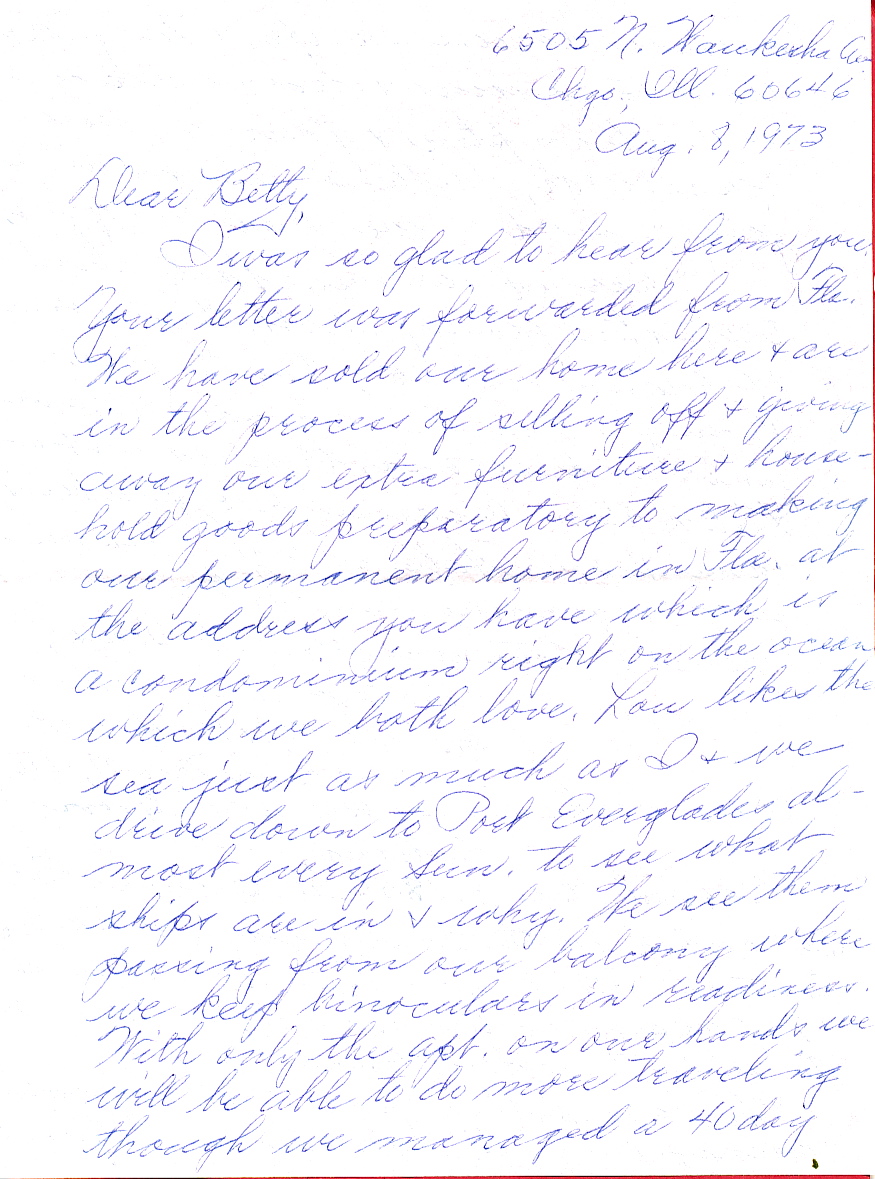 6505 N. Waukesha Ave
Chgo, Ill. 60646
Aug. 8, 1973
Dear Betty,
I was so glad to hear from you.
Your letter was forwarded from Fla.
We have sold our home here & are
in the process of selling off & giving
away our extra furniture & house-
hold goods preparatory to making
our permanent home in Fla. at
the address you have which is
a condominium right on the ocean
which we both love. Lou likes the
sea just as much as I & we
drive down to Port Everglades al-
most every Sun. to see what
ships are in & why. We see them
passing from our balcony where
we keep binoculars in readiness.
With only the apt. on our hands we
will be able to do more traveling
though we managed a 40 day